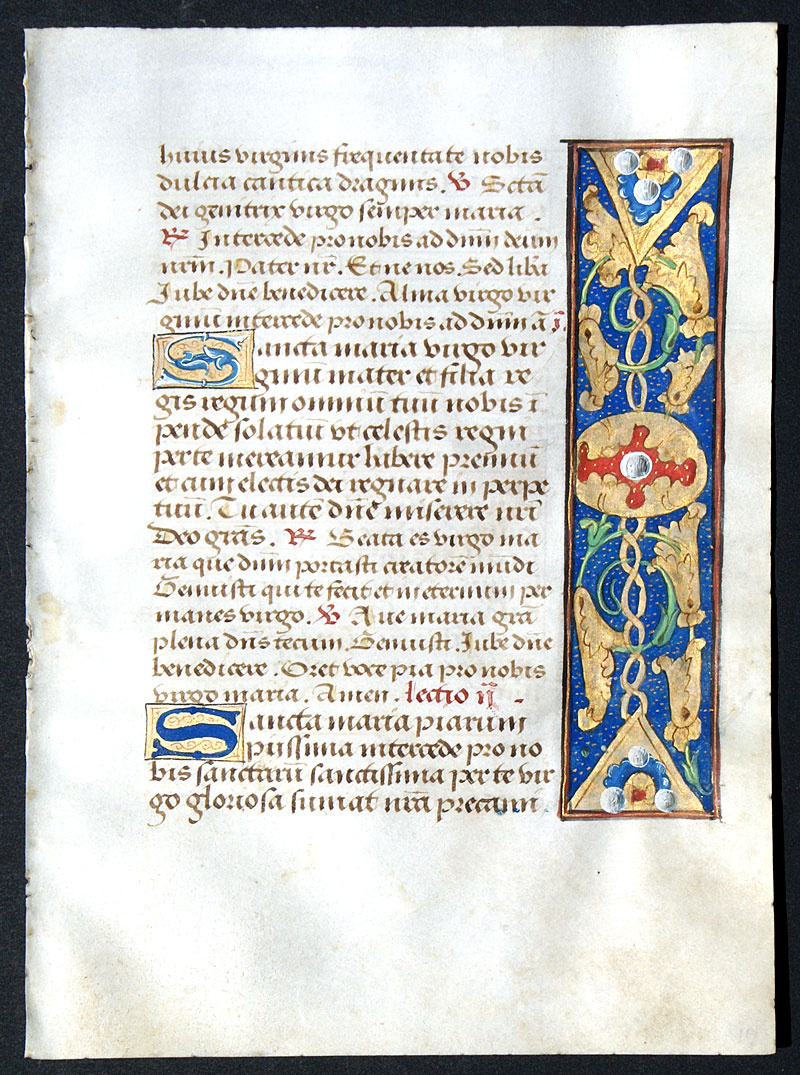 huius virginis frequentate nobis
dulcia cantica dragmis. ℣ Sctā
dei genitrix virgo semper maria .
℟ Intercede pro nobis ad dnm̄ deum
nrm̄. Pater nr̄. Et ne nos. Sed libera
Jube dn̄e benedicere. Alma virgo vir
ginū intercede pro nobis ad dnm̄ a ī.
Sancta maria virgo vir
ginū mater et filia re
gis regum omniū tuū nobis ī
pende solatiū vt celestis regni
per te mereamur habere premiū
et cum electis dei regnare in perpe
tuū. Tu autē dn̄e miserere nrī
Deo grās. ℟ Beata es virgo ma
ria que dnm̄ portasti creatorē mūdi
Genuisti qui te fecit et in eternum per
manes virgo. ℣ Aue maria grā
plena dn̄s tecum. Genuisti. Jube dn̄e
benedicere. Oret voce pia pro nobis
virgo maria. Amen. lectio ij .
Sancta maria piarum
piissima intercede pro no
bis sanctarū sanctissima per te vir
go gloriosa sumat nrā precami